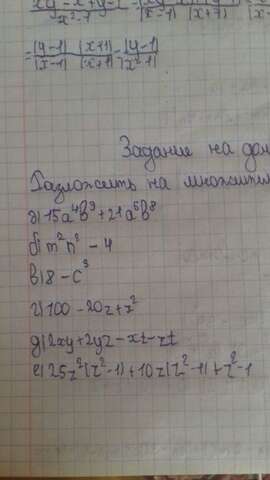 xy - x + y - 1
x² - 1
(x - 1) (x + 1)
= (y-1) (x+1) = (y-1)
(x-1) (x+1) (x-1)
Задание на дом
Разложить на множител
а) 15a⁴b⁹ + 21a⁶b⁸
б) m²n² - 4
в) 8 - c³
г) 100 - 20z + z²
д) 2xy + 2yz - xt - zt
е) 25z²(z²-1) + 10z(z²-1) + z²-1